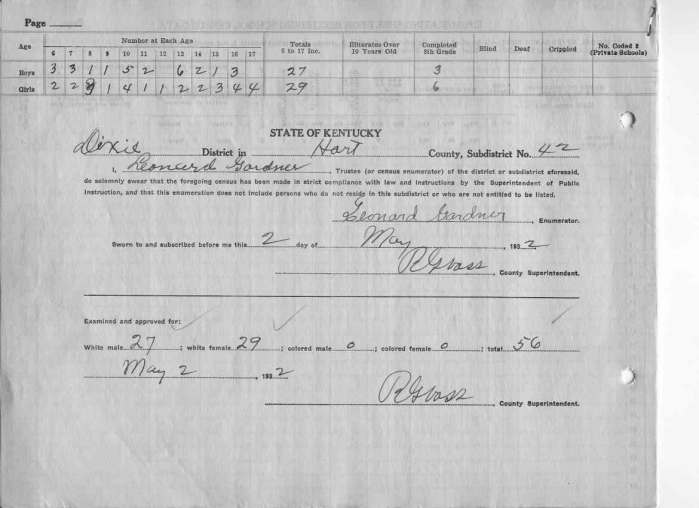 Page
Age Number at Each Age Totals 6 to 17 Inc. Illiterates Over 10 Years Old Completed 8th Grade Blind Deaf Crippled No. Coded 2 (Private Schools)
6 7 8 9 10 11 12 13 14 15 16 17
Boys 3 3 1 1 5 2 6 2 1 3 27 3
Girls 2 2 1 4 1 1 2 2 3 4 4 29 6
STATE OF KENTUCKY
Dixie District in Hart County, Subdistrict No. 42
I, Leonard Gardner, Trustee (or census enumerator) of the district or subdistrict aforesaid,
do solemnly swear that the foregoing census has been made in strict compliance with law and instructions by the Superintendent of Public
Instruction, and that this enumeration does not include persons who do not reside in this subdistrict or who are not entitled to be listed.
Leonard Gardner, Enumerator.
Sworn to and subscribed before me this 2 day of May, 1932
County Superintendent.
Examined and approved for:
White male 27; white female 29; colored male 0; colored female 0; total 56
May 2, 1932
County Superintendent.